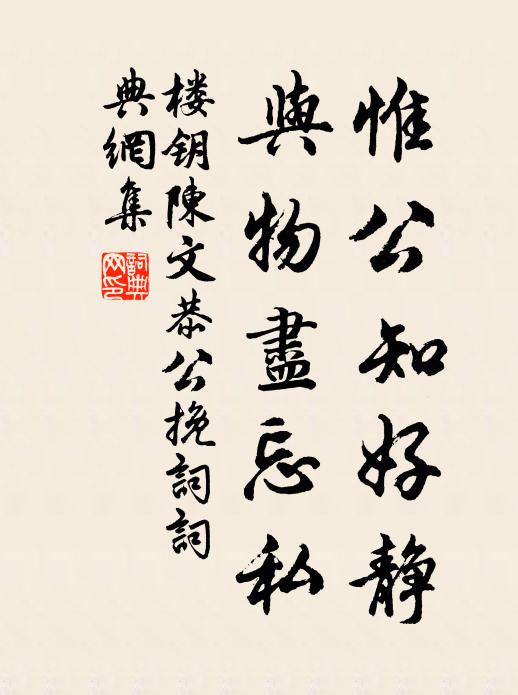 惟公知好靜
與物盡忘私
楼钥陳文恭公挽詞詞
典網集
詞典
网印